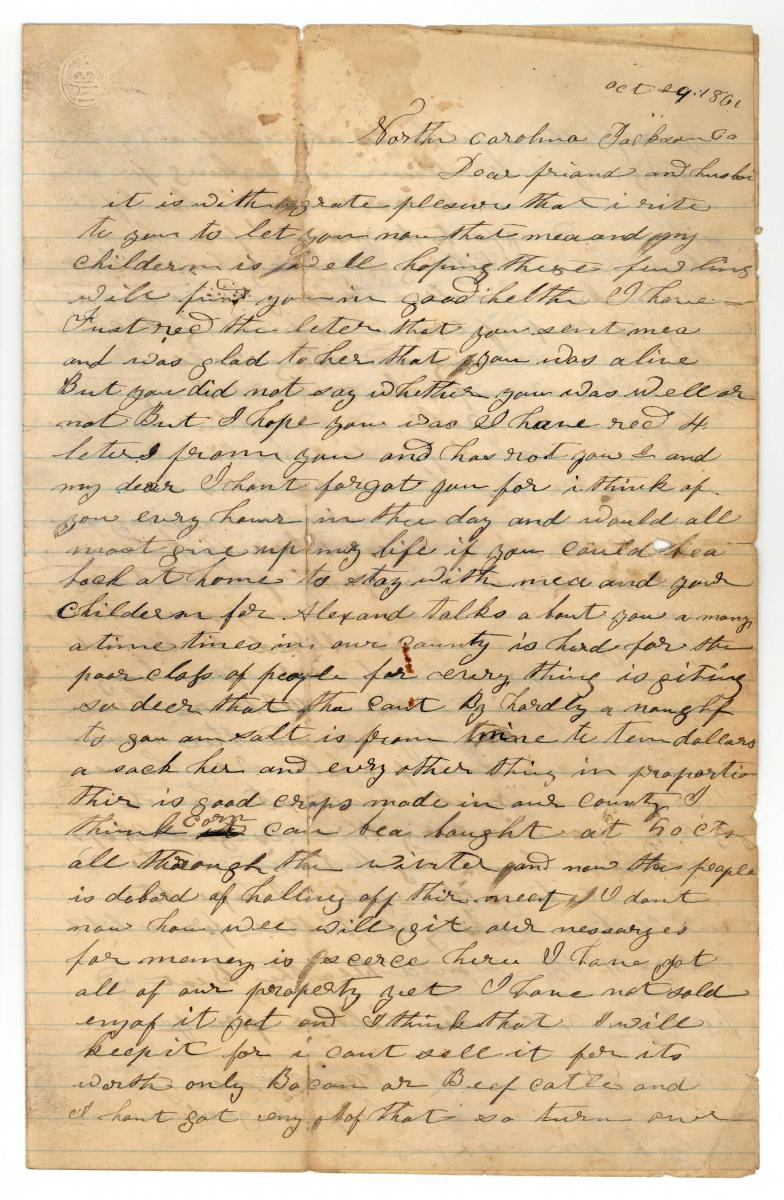 oct 29. 1861
North carolina Jackson Co
Dear friend and husban
it is with grate plesure that i rite
to you to let you now that mea and my
childern is well hoping these few lins
will find you in good helth I have
Just recd the leter that you sent mea
and was glad to her that you was alive
But you did not say whether you was well or
not But I hope you was I have recd 4
leters from you and has rot you 2 and
my dear I hant forgot you for i think of
you every hour in the day and would all
most give up my life if you could bea
back at home to stay with mea and your
childern for Alexand talks about you a many
a time times in our county is hard for the
poor class of people for every thing is giting
so deer that tha cant By hardly a nought
to you am salt is from nine to tenn dollars
a sack her and evry other thing in proportio
thir is good crops made in our county I
think corn can bea bought at 50 cts
all through the winter and now the people
is dobard of halling off thir meat I dont
now how wee will git our nessarys
for money is scerce here I have got
all of our property yet I have not sold
eny of it yet and I think that I will
keep it for i cant sell it for its
worth only Bacon or Beef catle and
I hant got eny of that so turn over